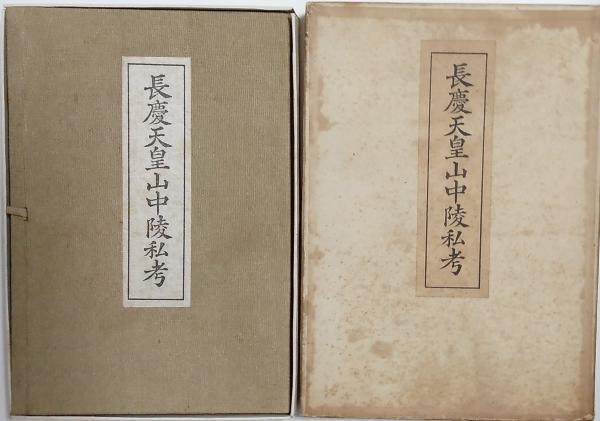 長慶天皇山中陵私考
長慶天皇山中陵私考